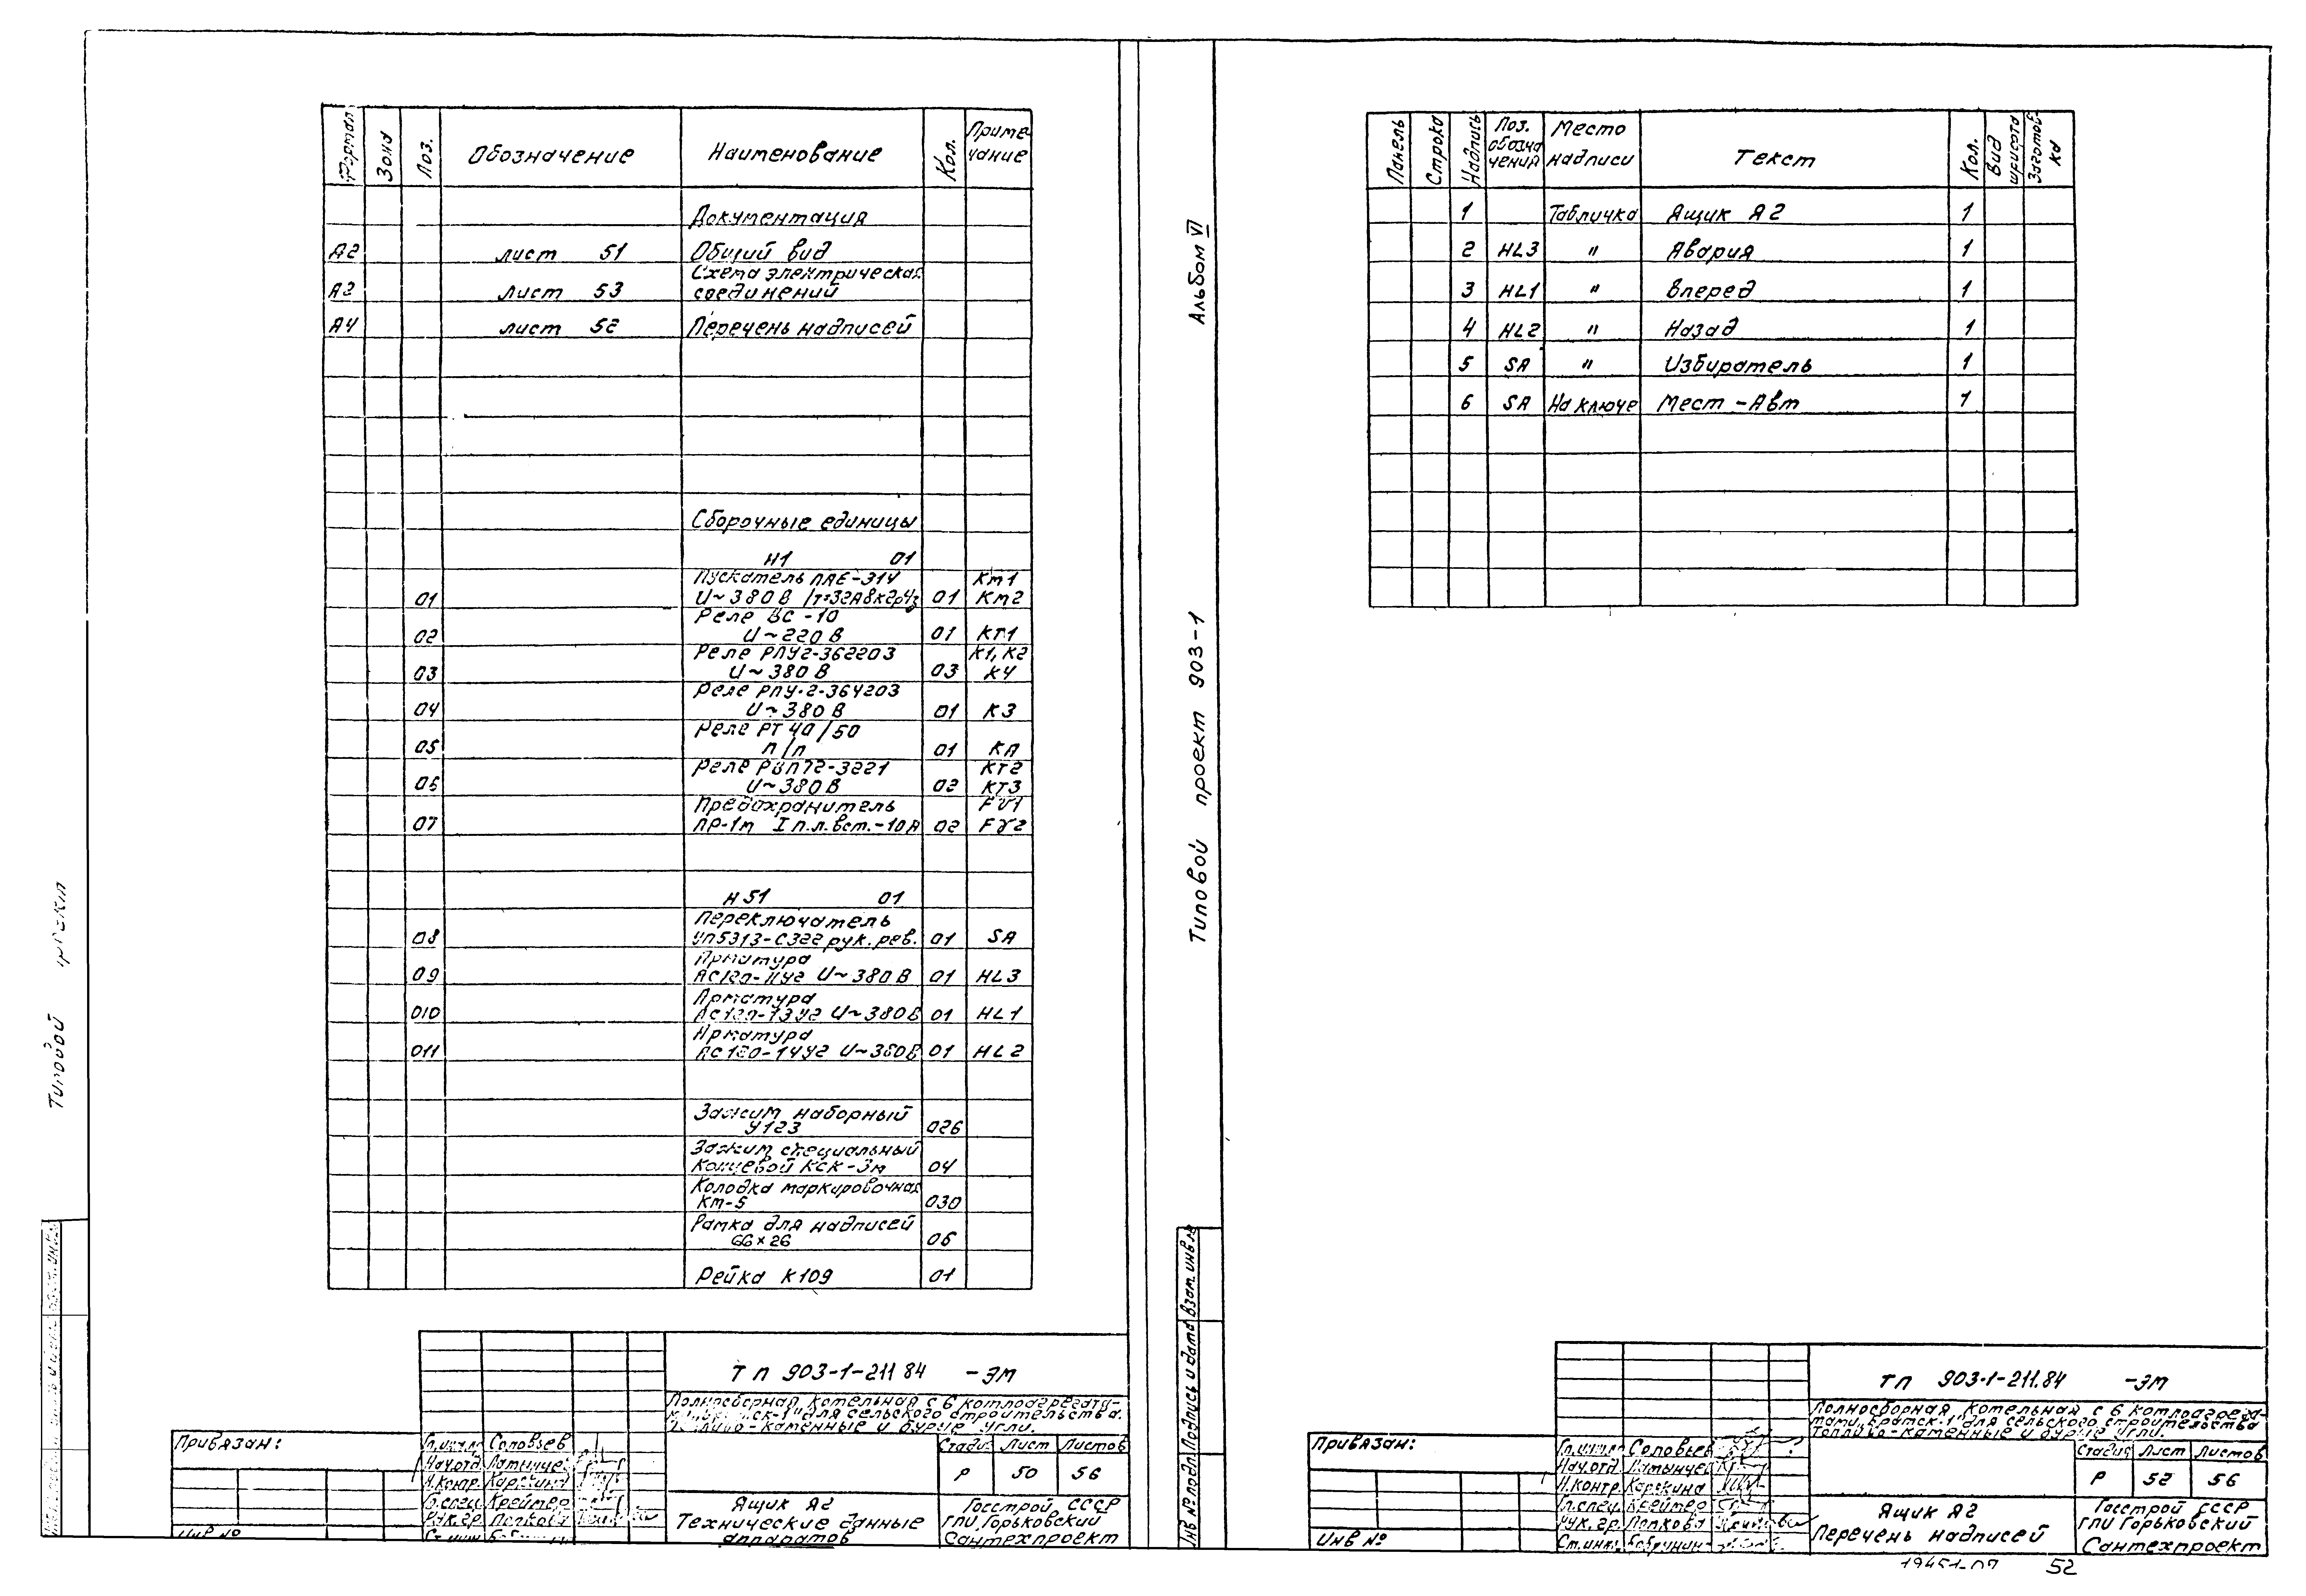 Формат Зона Поз. Обозначение Наименование Кол. Приме-
чание
Документация
А2 лист 51 Общий вид
Схема электрическая
А2 лист 53 соединений
А4 лист 52 Перечень надписей
Сборочные единицы
Н1 01
Пускатель ПАЕ-314 КМ1
01 U~380В 01 КМ2
Реле ВС-10
02 U~220В 01 КТ1
Реле РПУ2-362203 К1, К2
03 U~380В 03 К4
Реле РПУ-2-364203
04 U~380В 01 К3
Реле РТ 40/50
05 п/п 01 КА
Реле РВП72-3221 КТ2
06 U~380В 02 КТ3
Предохранитель FV1
07 ПР-1м I п.л.вст.-10А 02 FV2
Н51 01
Переключатель
08 УП5313-С322 рук. рев. 01 SA
Арматура
09 АС120-11У2 U~380В 01 HL3
Арматура
010 АС120-13У2 U~380В 01 HL1
Арматура
011 АС120-14У2 U~380В 01 HL2
Зажим наборный
У123 026
Зажим специальный
концевой КСК-3м 04
Колодка маркировочная
КМ-5 030
Рамка для надписей
66×26 06
Рейка К109 01
Типовой проект
ТП 903-1-211.84 -ЭМ
Полносборная котельная с 6 котлоагрегата-
для сельского строительства.
-каменные и бурые угли.
Привязан:
Соловьев
Нач.отд.
Н.контр. Карякина
Гл.спец. Крейтер
Рук.гр. Попкова
Ст.инж.
Инв №
Стадия Лист Листов
Р 50 56
Ящик А2
Технические данные
аппаратов
Госстрой СССР
ГПИ Горьковский
Сантехпроект
Альбом VI
Типовой проект 903-1
Инв № подл Подпись и дата Взам. инв №
Панель Строка Надпись Поз. обозна чения Место надписи Текст Кол. Вид шрифта Заготов-
ка
1 Табличка Ящик А2 1
2 HL3 " Авария 1
3 HL1 " Вперед 1
4 HL2 " Назад 1
5 SA " Избиратель 1
6 SA На ключе Мест-Авт 1
ТП 903-1-211.84 -ЭМ
Полносборная котельная с 6 котлоагрега-
тами „Братск-1" для сельского строительства
Топливо-каменные и бурые угли.
Привязан:
Соловьев
Нач.отд.
Н.контр. Карякина
Гл.спец. Крейтер
Рук.гр. Попкова
Ст.инж.
Инв №
Стадия Лист Листов
Р 52 56
Ящик А2
Перечень надписей
Госстрой СССР
ГПИ Горьковский
Сантехпроект
19451-07 52